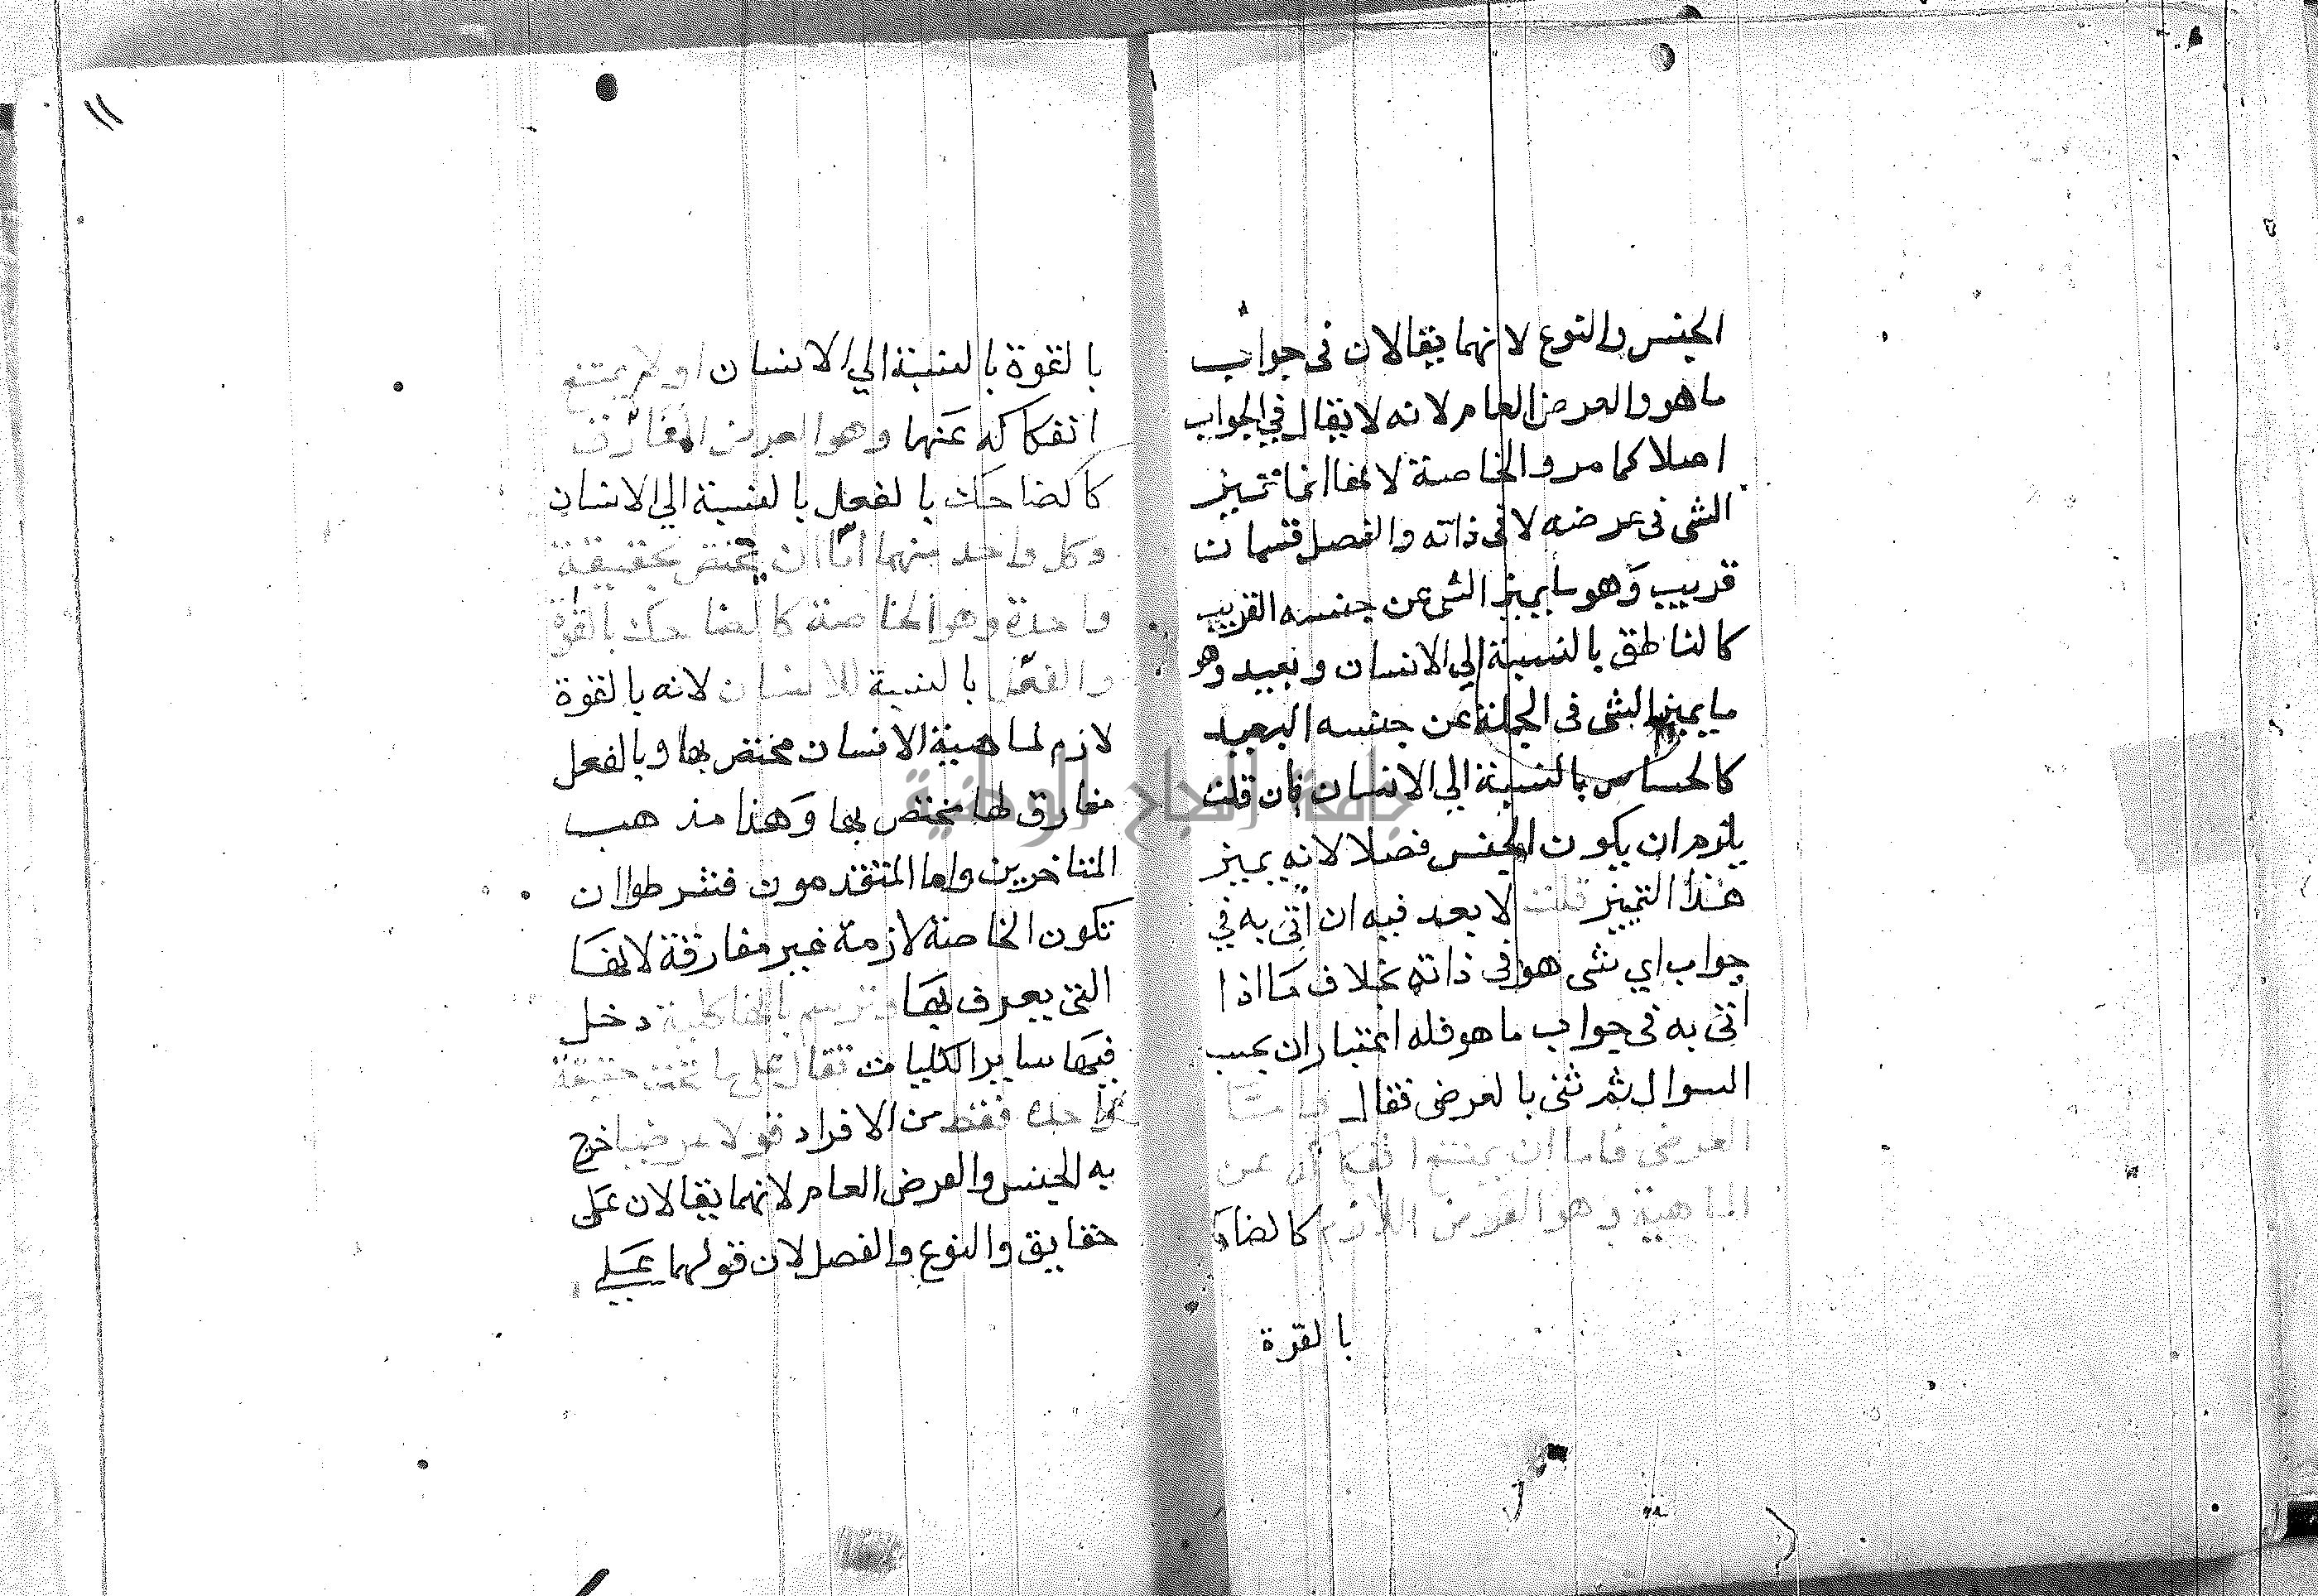 الجنس والنوع لانهما يقالان فى جواب
ما هو والعرض العام لانه لا يقال في الجواب
اصلا كما مر والخاصة لانها انما تميز
الشى فى عرضه لا فى ذاته والفصل قسمان
قريب وهو ما يميز الشى عن جنسه القريب
كالناطق بالنسبة الي الانسان وبعيد وهو
ما يميز الشى فى الجملة عن جنسه البعيد
كالحساس بالنسبة الي الانسان فان قلت
يلزم ان يكون الجنس فصلا لانه يميز
هذا التمييز قلت لا بعد فيه ان اتى به في
جواب اي شى هو فى ذاته بخلاف ما اذا
اتى به فى جواب ما هو فله اعتباران بحسب
السوال ثم ثنى بالعرضى فقال واما
العرضى فاما ان يمتنع انفكاكه عن
الماهية وهو العرض اللازم كالضاحك
بالقوة
١١
بالقوة بالنسبة الي الانسان او لا يمتنع
انفكاكه عنها وهو العرض المفارق
كالضاحك بالفعل بالنسبة الي الانسان
وكل واحد منهما اما ان يختص بحقيقة
واحدة وهو الخاصة كالضاحك بالقوة
والفعل بالنسبة للانسان لانه بالقوة
لازم لماهية الانسان مختص بها وبالفعل
مفارق لها مختص بها وهذا مذهب
المتاخرين واما المتقدمون فشرطوا ان
تكون الخاصة لازمة غير مفارقة لانها
التى يعرف بها وترسم بانها كلية دخل
فيها ساير الكليات تقال على ما تحت حقيقة
واحدة فقط من الافراد قولا عرضيا خرج
به الجنس والعرض العام لانهما يقالان على
حقايق والنوع والفصل لان قولهما على
جامعة النجاح الوطنية